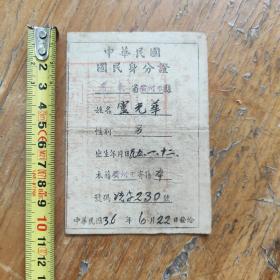 中華民國
國民身分證
廣東省廣州市縣
姓名 盧光華
性別 男
出生年月日 五.一.十二.
本籍 廣州市 寄籍 本
號碼 230號
中華民國36年6月22日發給
1
2
3
4
5
6
7
8
9
10
11